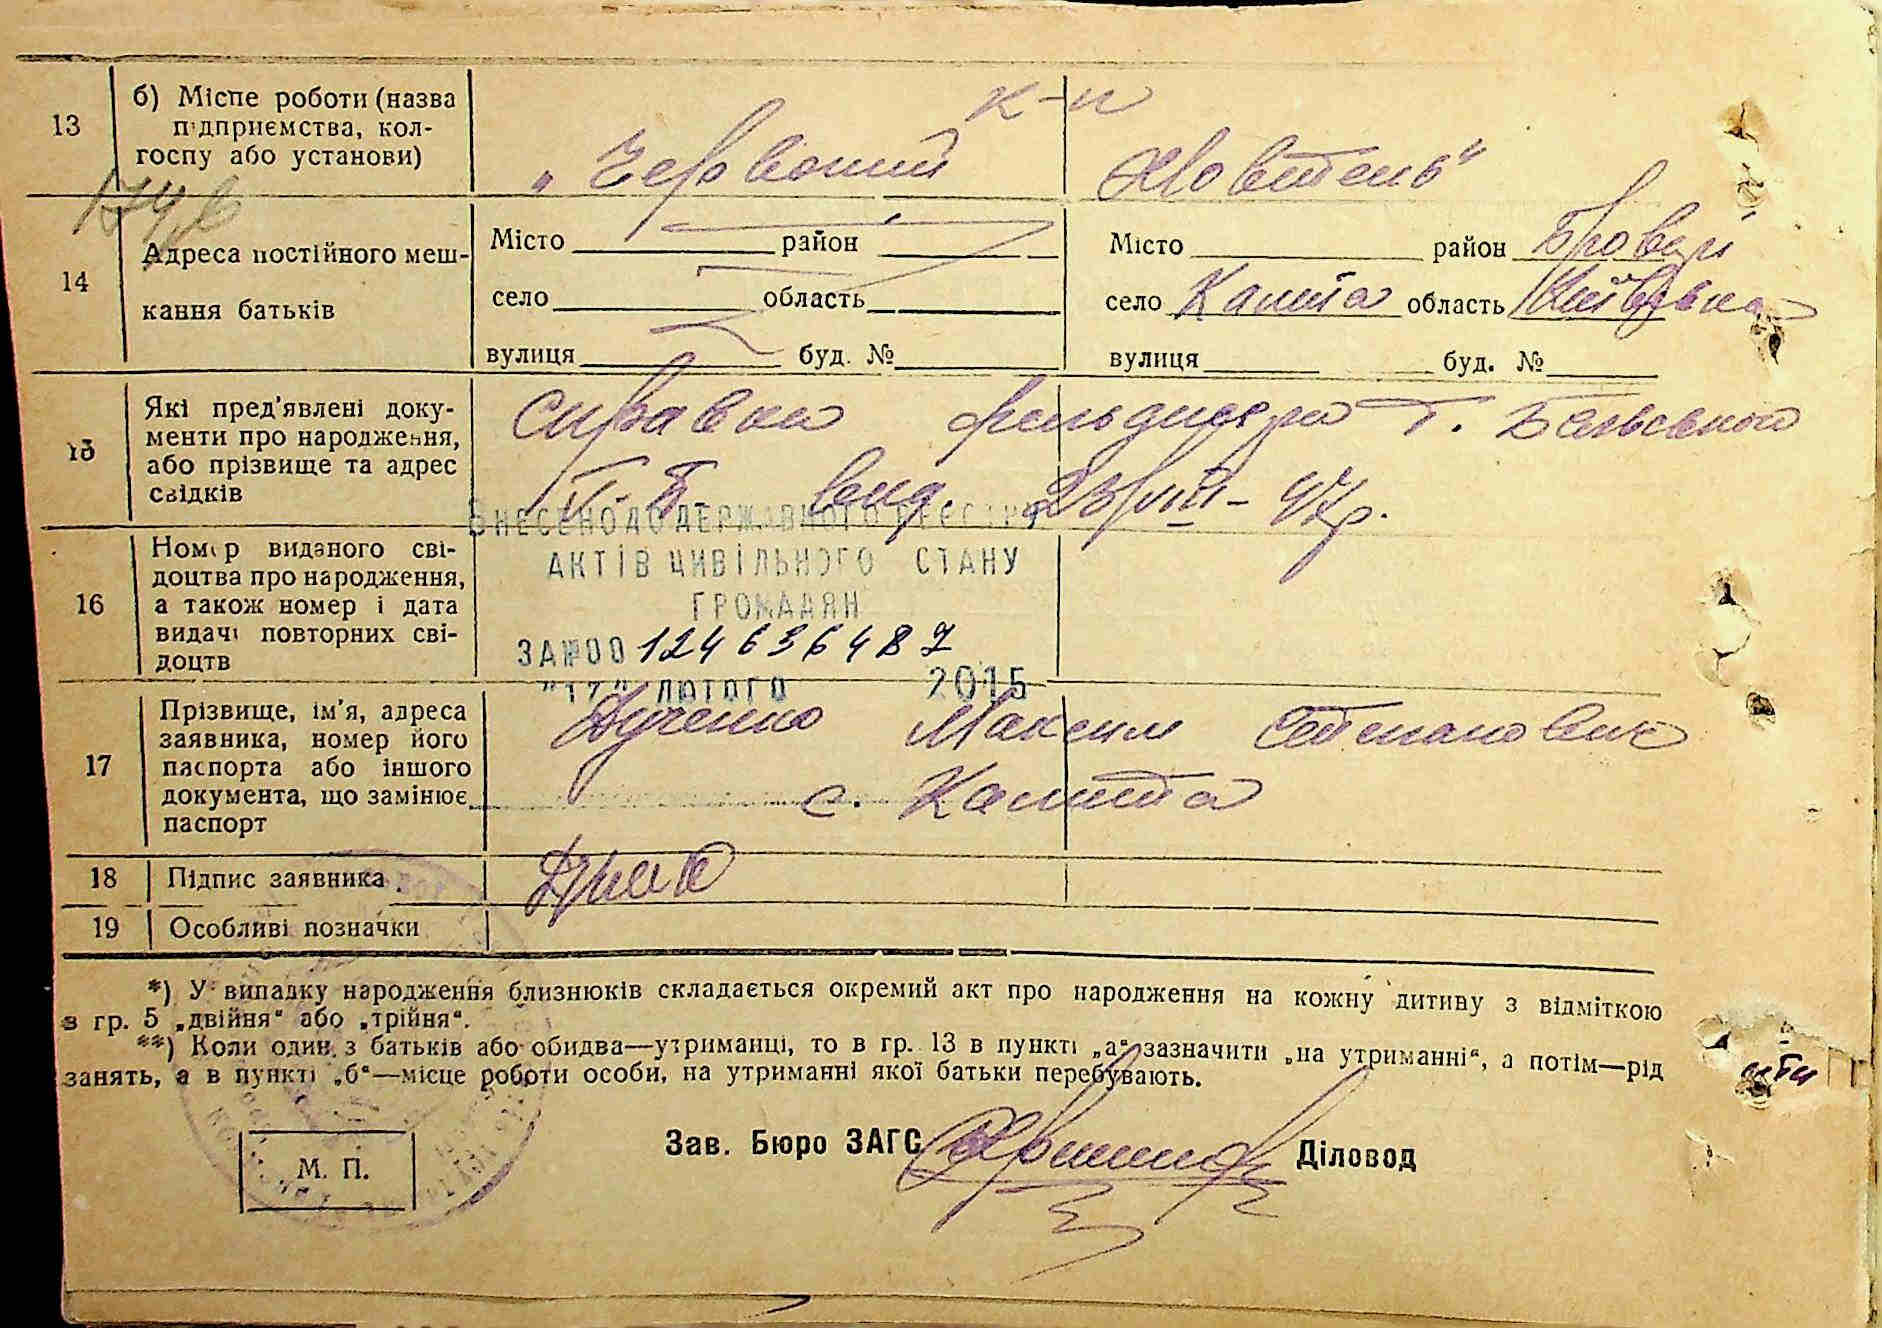 13
б) Місце роботи (назва підприємства, колгоспу або установи)
к-п
„Червоний Жовтень“
14
Адреса постійного мешкання батьків
Місто район
село область
вулиця буд. №
Місто район Бровар.
село Калита область Київська
вулиця буд. №
15
Які пред'явлені документи про народження, або прізвище та адрес свідків
Справка фельдшера
вид. 23/VIII-47р.
16
Номер виданого свідоцтва про народження, а також номер і дата видачі повторних свідоцтв
ВНЕСЕНО ДО ДЕРЖАВНОГО РЕЄСТРУ
АКТІВ ЦИВІЛЬНОГО СТАНУ
ГРОМАДЯН
ЗА №00124636487
"17" ЛЮТОГО 2015
17
Прізвище, ім'я, адреса заявника, номер його паспорта або іншого документа, що замінює паспорт
Дученко Максим Степанович
с. Калита
18
Підпис заявника
19
Особливі позначки
*) У випадку народження близнюків складається окремий акт про народження на кожну дитину з відміткою
в гр. 5 „двійня“ або „трійня“.
**) Коли один з батьків або обидва—утриманці, то в гр. 13 в пункті „а“ зазначити „на утриманні“, а потім—рід
занять, а в пункті „б“—місце роботи особи, на утриманні якої батьки перебувають.
М. П.
Зав. Бюро ЗАГС Діловод